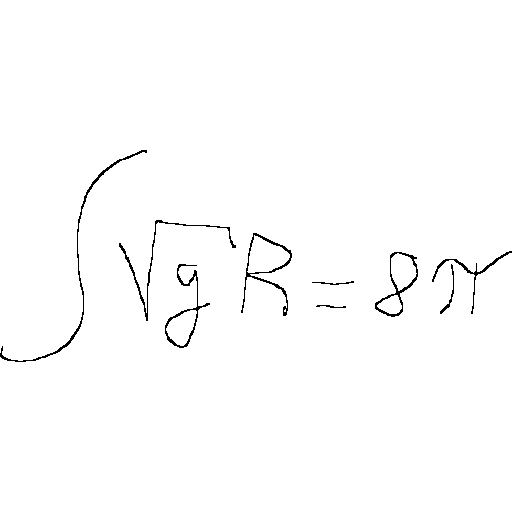 ∫√g R = 8π